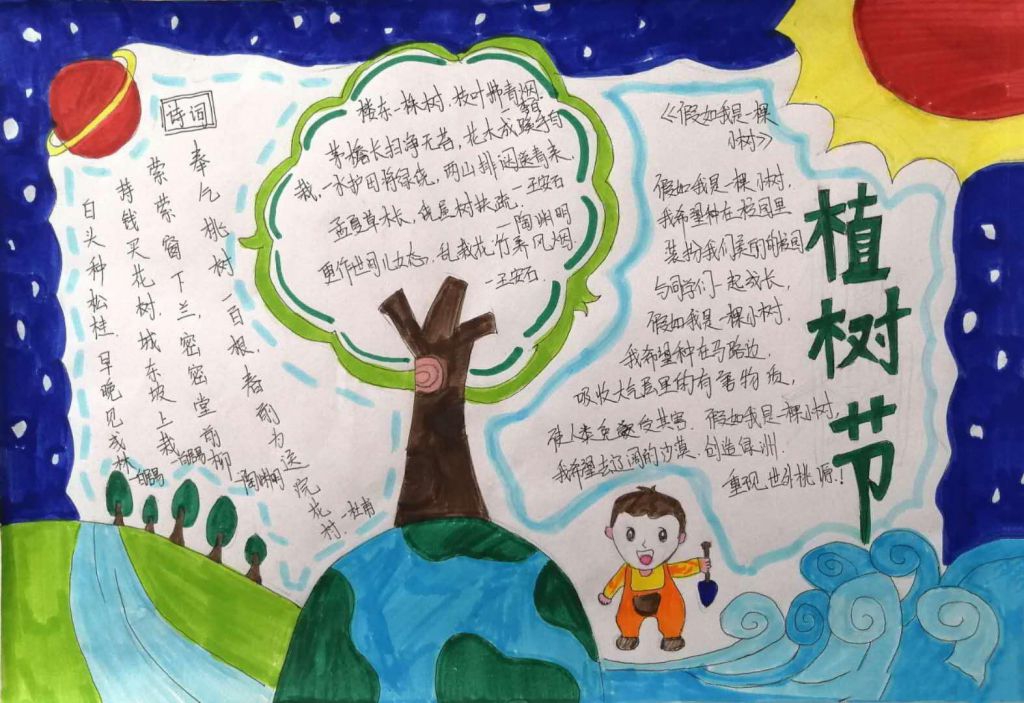 诗词
奉乞桃树一百根,春前为送浣花村.—杜甫
荣荣窗下兰,密密堂前柳 陶渊明
持钱买花树,城东坡上栽 —白居易
白头种松桂,早晚见成林 —白居易
楼东一株树,枝叶拂青烟.
李白
茅檐长扫净无苔,花木成蹊手自
栽,一水护田将绿绕,两山排闼送青来.
—王安石
孟夏草木长,绕屋树扶疏.
—陶渊明
更作世间儿女态,乱栽花竹养风烟
—王安石
《假如我是一棵
小树》
假如我是一棵小树,
我希望种在校园里
装扮我们美丽的校园
与同学们一起成长,
假如我是一棵小树.
我希望种在马路边.
吸收大气层里的有害物质,
人类免受其害. 假如我是一棵小树,
我希望去辽阔的沙漠.创造绿洲.
重现世外桃源!
植树节